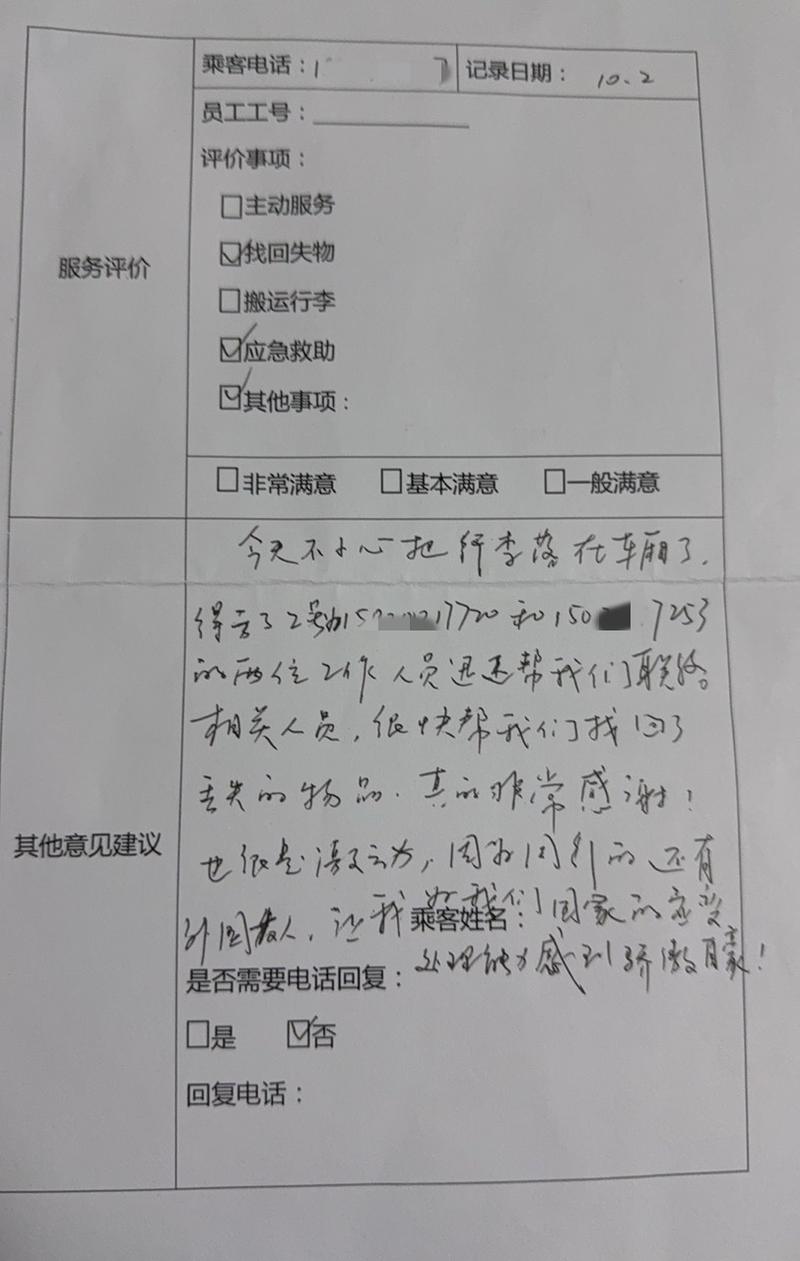 乘客电话：1
记录日期： 10.2
员工工号：
评价事项：
主动服务
找回失物
搬运行李
应急救助
其他事项：
服务评价
非常满意 基本满意 一般满意
今天不小心把行李落在车厢了.
得 了 工号 17720 和 150 7253
的两位工作人员迅速帮我们联络
相关人员，很快帮我们找回了
丢失的物品. 真的非常感谢！
也很是激动, 因为同行的还有
外国友人, 让我 我们国家的应变
处理能力感到骄傲自豪！
其他意见建议
乘客姓名：
是否需要电话回复：
是 否
回复电话：